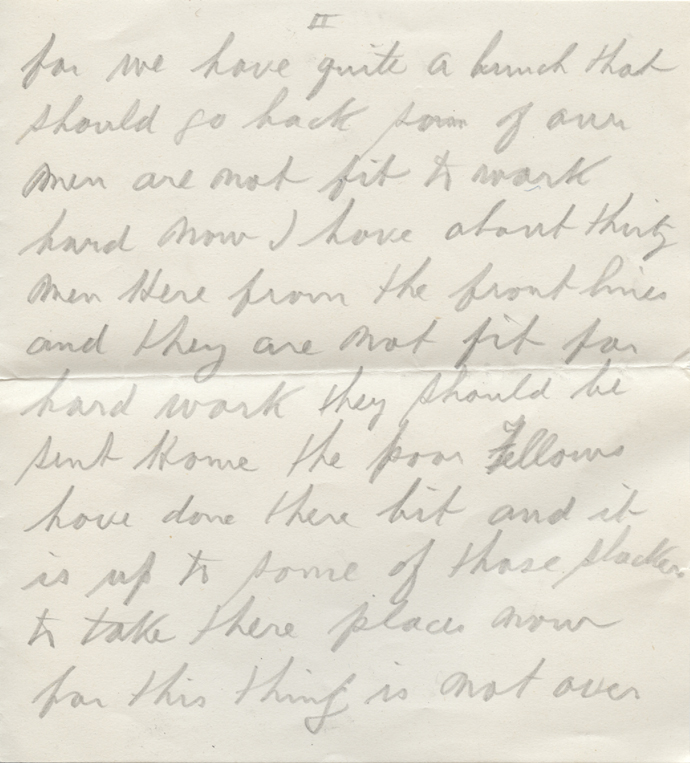 II
for we have quite a bunch that
should go back som of our
men are not fit to work
hard now I have about thirty
men Here from the front lines
and they are not fit for
hard work they should be
sent Home the poor Fellows
have done there bit and it
is up to some of those slackers
to take there places now
for this thing is not over